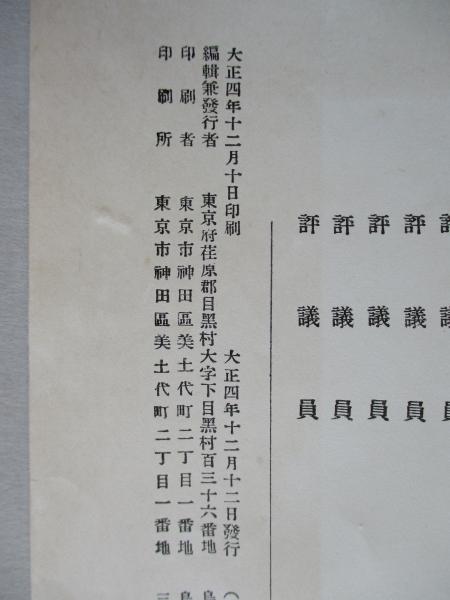 評議員
評議員
評議員
評議員
大正四年十二月十日印刷 大正四年十二月十二日發行
編輯兼發行者 東京府荏原郡目黑村大字下目黑村百三十六番地
印刷者 東京市神田區美土代町二丁目一番地
印刷所 東京市神田區美土代町二丁目一番地 三